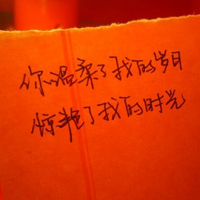 你温柔了我的岁月
惊艳了我的时光